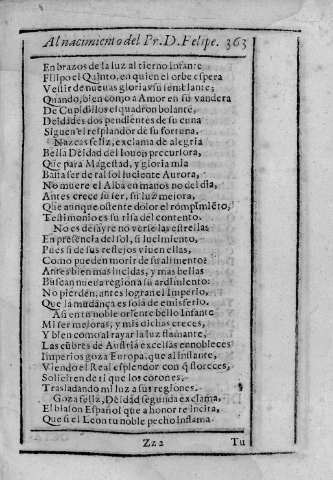 Al nacimiento del Pr. D. Felipe. 363
En brazos de la luz al tierno Infante
Filipo el Quinto, en quien el orbe espera
Vestir de nuevas glorias su semblante;
Quando, bien como a Amor en su vandera
De Cupidillos el quadron bolante,
Deidades dos pendientes de su cuna
Siguen el resplandor de su fortuna,
Nazcas feliz, exclama de alegria
Bella Deidad del Iouen precursora,
Que para Magestad, y gloria mia
Basta ser de tal sol luciente Aurora,
No muere el Alba en manos no del dia,
Antes crece su ser, su luz mejora,
Que aunque ostente dolor el rompimiẽto,
Testimonio es su risa del contento.
No es desayre no verse las estrellas
En presencia del sol, si lucimiento,
Pues si de sus reflejos viuen ellas,
Como pueden morir de su alimento?
Antes bien mas lucidas, y mas bellas
Buscan nueua region a su ardimiento:
No pierden, antes logran el Imperio,
Que la mudança es sola de emisferio.
Asi en tu noble oriente bello Infante
Mi ser mejoras, y mis dichas creces,
Y bien como al rayar la luz flamante,
Las cũbres de Austria excelsas ennobleces
Imperios goza Europa, que al instante,
Viendo el Real esplendor con q̃ floreces,
Soliciten de ti que los corones,
Trasladando mi luz a sus regiones.
Goza feliz, Deidad segunda exclama,
El blason Español que a honor te incita,
Que si el Leon tu noble pecho inflama.
Zz 2 Tu